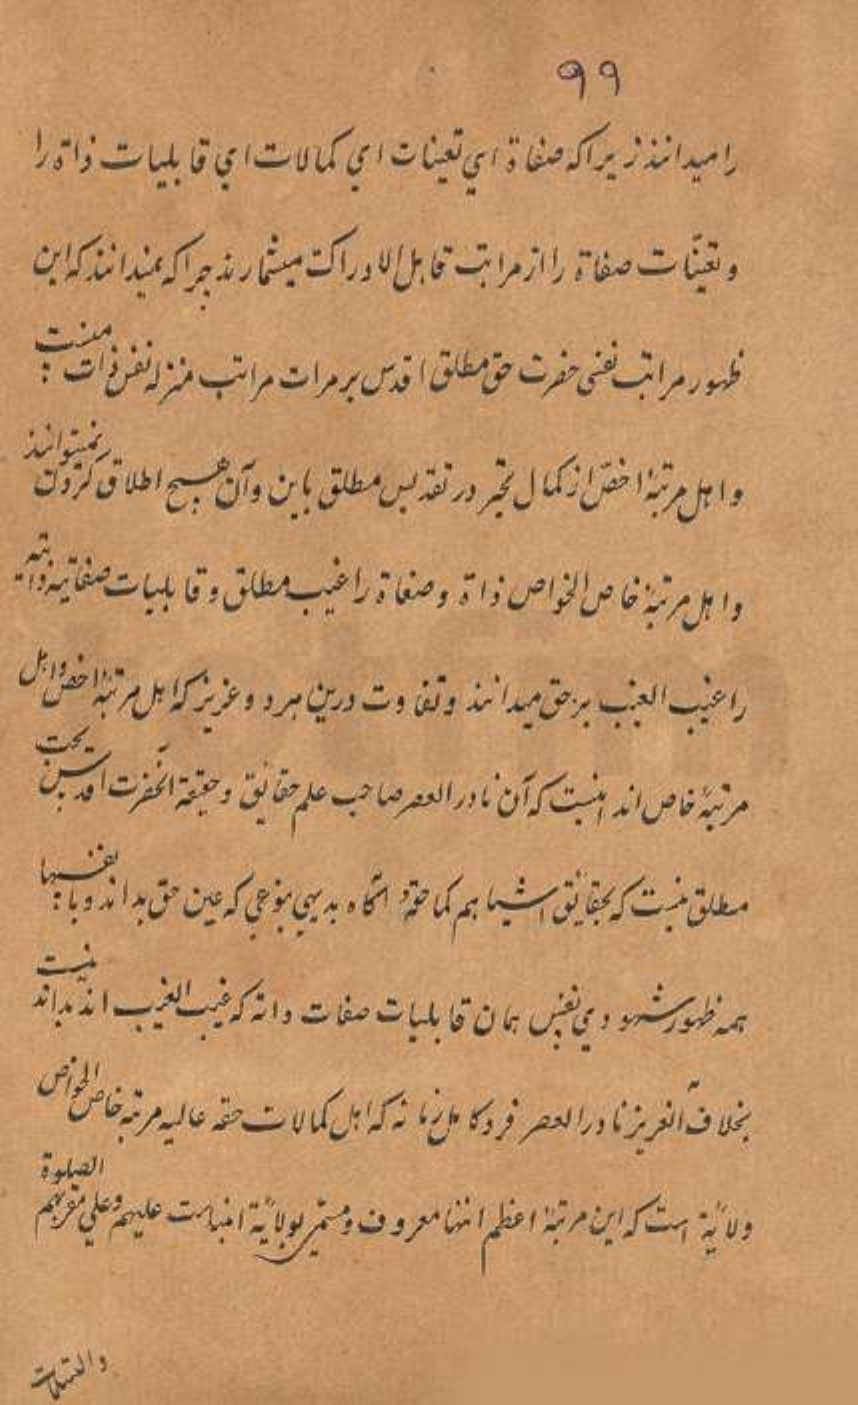 ۹۹
را میدانند زیرا که صفاة ای تعینات ای کمالات ای قابلیات ذاة را
و تعینّات صفاة را از مراتب قابل الادراک میشمارند چرا که میدانند که این
ظهور مراتب نفس حضرت حق مطلق اقدس بر مرات مراتب منزله نفس ذات
و اهل مرتبهٔ اخصّ از کمال تحیر در تقدیس مطلق باین و آن هیچ اطلاق کردن نمیتوانند
و اهل مرتبهٔ خاص الخواص ذاة و صفاة را غیب مطلق و قابلیات صفاتیه ذاتیه
را غیب الغیب بر حق میدانند و تفاوت درین هر دو عزیز که اهل مرتبهٔ اخص و اهل
مرتبهٔ خاص اند اینست که آن نادر العصر صاحب علم حقایق و حقیقة آنحضرت اقدس
مطلق نیست که بحقایق اشیا هم کما حقهٔ آگاه بدیهی بنوعی که عین حق بداند و با بنفسها
همه ظهور شهودی نفس همان قابلیات صفات ذاته که غیب الغیب اند بداند نیست
بخلاف آنعزیز نادر العصر فرد کامل زمانه که اهل کمالات حقه عالیه مرتبه خاص الخواص
ولایة است که این مرتبهٔ اعظم انتها معروف و مسمّی بولایة انبیاست علیهم و علی مقربهم الصلوة
والتسلیمات